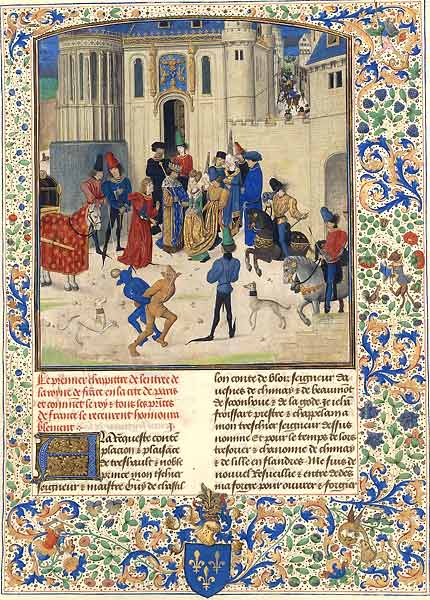 Le premier chapittre de lentree de
la royne de frãce en la cite de paris
et comẽt le roy & tous les prĩces
de france le receurent honnoura
blement
A la requeste contẽ
placion & plaisance
de treshault & noble
prince mon treschier
seigneur & maistre Guy de chastil
lon conte de blois seigneur da
uesnes de chimay & de beaumõt
de sconnhoue & de la gode Je iehã
froissart prestre & chappelain a
mon treschier seigneur dessus
nomme et pour le temps de lors
tresorier & chanonne de chimay
et de lille en flandres Me suis de
nouuel resueillie & entre dedẽs
ma forge pour ouurer & forgier